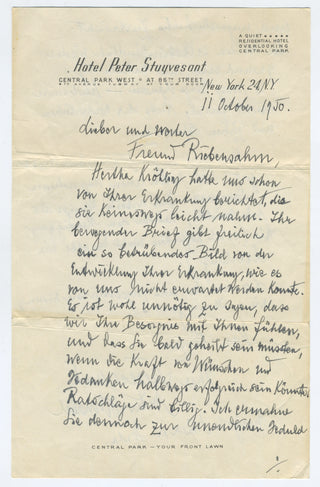 A QUIET
RESIDENTIAL HOTEL
OVERLOOKING
CENTRAL PARK
Hotel Peter Stuyvesant
CENTRAL PARK WEST • AT 86TH STREET
New York 24 NY.
11 October 1950.
Lieber und werter
Freund Riebensahm,
Hertha Kröhling hatte uns schon
von Ihrer Erkrankung berichtet, die
sie keineswegs leicht nahm. Ihr
bewegender Brief gibt freilich
ein so betrübendes Bild von der
Entwicklung Ihrer Erkrankung, wie es
von uns nicht erwartet werden konnte.
Es ist wohl unnötig zu sagen, dass
wir Ihr Besorgnis mit Ihnen fühlen,
und dass Sie bald geheilt sein müssten,
wenn die Kraft von Wünschen und
Gedanken halbwegs erfolgreich sein könnte.
Ratschläge sind billig. Ich ermahne
Sie dennoch zur unendlichen Geduld
CENTRAL PARK — YOUR FRONT LAWN